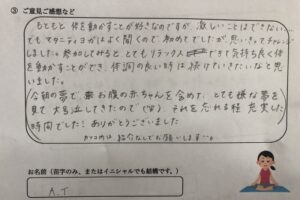 ③ ご意見ご感想など
もともと 体を動かすことが好きなのですが、激しいことはできない…
でもマタニティヨガはよく聞くので、初めてでしたが思いきってチャレンジ
しました。参加してみると、とてもリラックスできて気持ち良く体
を動かすことができ、体調の良い時は続けていきたいなと思
いました。
今朝の夢で、お腹の赤ちゃんを含めて、とても嫌な夢を
見て大号泣してきたので(笑) それを忘れる程充実した
時間でした！ありがとうございました
カッコ内は紹介なしでお願いします
お名前（苗字のみ、またはイニシャルでも結構です。）
A.T